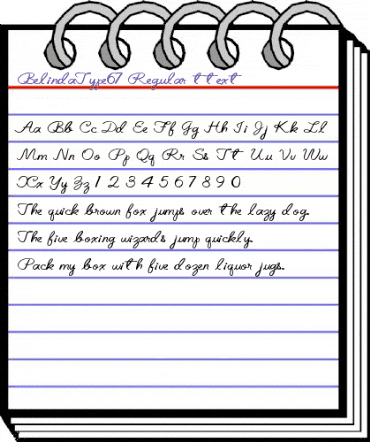 BelindaType67 Regular t text
Aa Bb Cc Dd Ee Ff Gg Hh Ii Jj Kk Ll
Mm Nn Oo Pp Qq Rr Ss Tt Uu Vv Ww
Xx Yy Zz 1 2 3 4 5 6 7 8 9 0
The quick brown fox jumps over the lazy dog.
The five boxing wizards jump quickly.
Pack my box with five dozen liquor jugs.